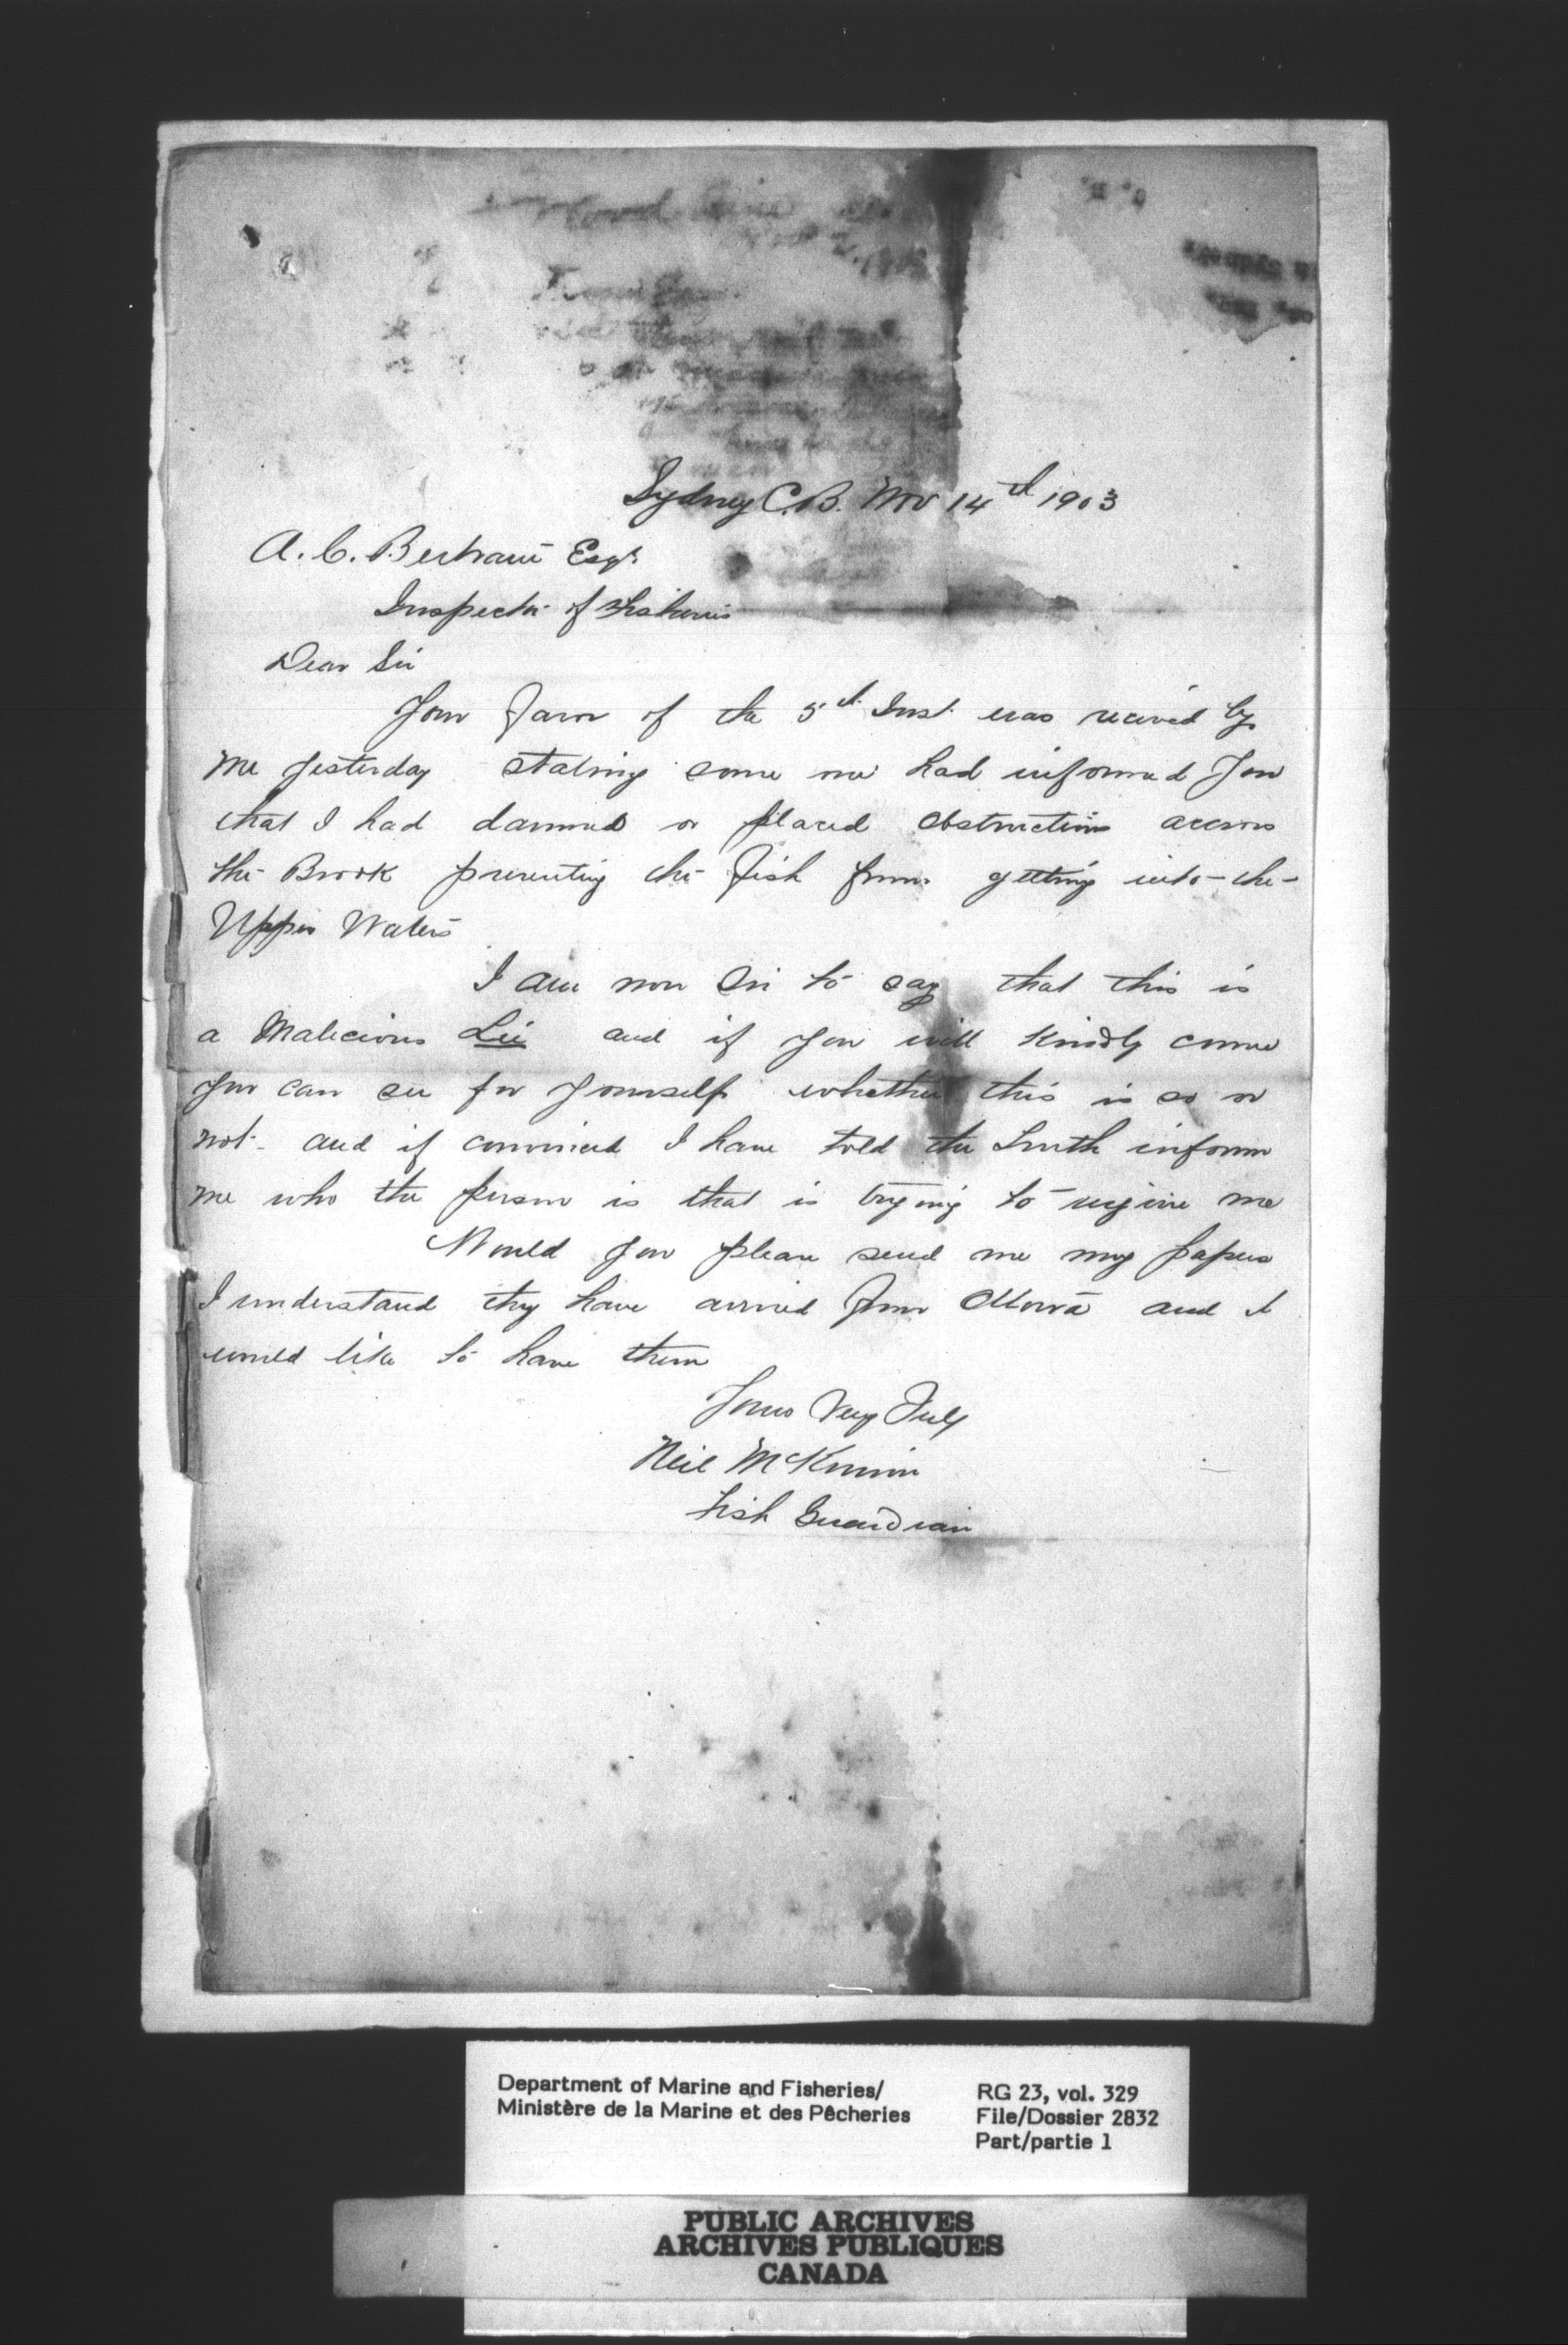 Sydney C.B. Nov 14th 1903
A. C. Bertram Esqr.
Inspector of Fisheries
Dear Sir
Your favor of the 5th Inst. was recived by
me yesterday stating some one had informed you
that I had dammed or placed obstructions accross
the Brook preventing the Fish from getting into the
Upper Waters
I am now Sir to say that this is
a Malicious Lie and if you will Kindly come
you can see for yourself whether this is so or
not. and if convinced I have told the Truth inform
me who the person is that is trying to injure me
Would you please send me my papers
I understand they have arrived from Ottowa and I
would like to have them
Yours Very Truly
Neil McKinnin
Fish Guardian
Department of Marine and Fisheries/
Ministère de la Marine et des Pêcheries
RG 23, vol. 329
File/Dossier 2832
Part/partie 1
PUBLIC ARCHIVES
ARCHIVES PUBLIQUES
CANADA